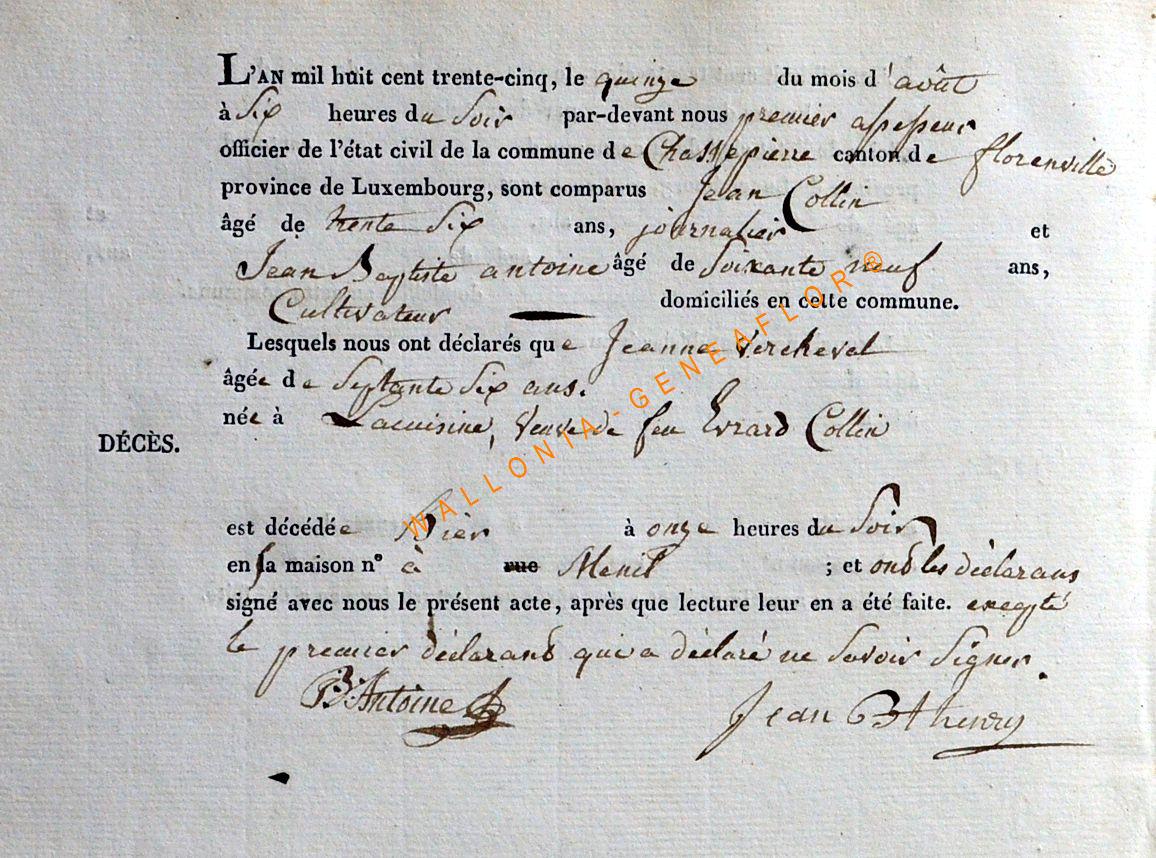 L'AN mil huit cent trente-cinq, le quinze du mois d'août
à Six heures du Soir par-devant nous premier assesseur
officier de l'état civil de la commune de Chassepierre canton de florenville
province de Luxembourg, sont comparus Jean Collin
âgé de trente Six ans, journalier et
Jean Baptiste antoine âgé de Soixante neuf ans,
Cultivateur domiciliés en cette commune.
Lesquels nous ont déclarés que Jeanne Vercheval
âgée de Septante Six ans.
née à Lacuisine, Veuve de feu Evrard Collin
DÉCÈS.
est décédée hièr à onze heures du Soir
en sa maison n° à rue Menil ; et ont les déclarans
signé avec nous le présent acte, après que lecture leur en a été faite. excepté
le premier déclarant qui a déclaré ne Savoir Signer.
JB Antoine
Jean Bt henry
WALLONIA-GENEAFLOR®